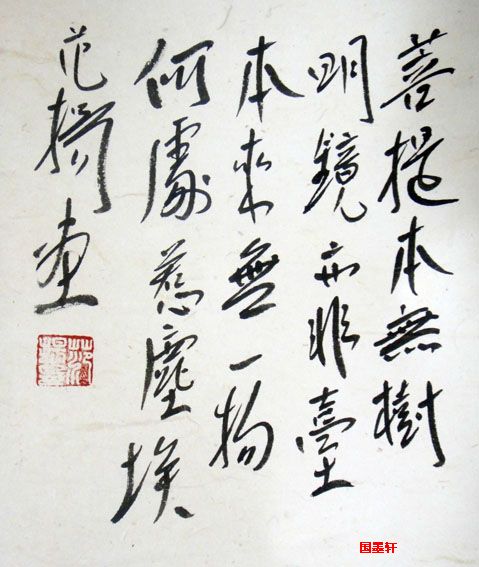 菩提本無樹
明鏡亦非臺
本来無一物
何處惹塵埃
范揚
国墨轩